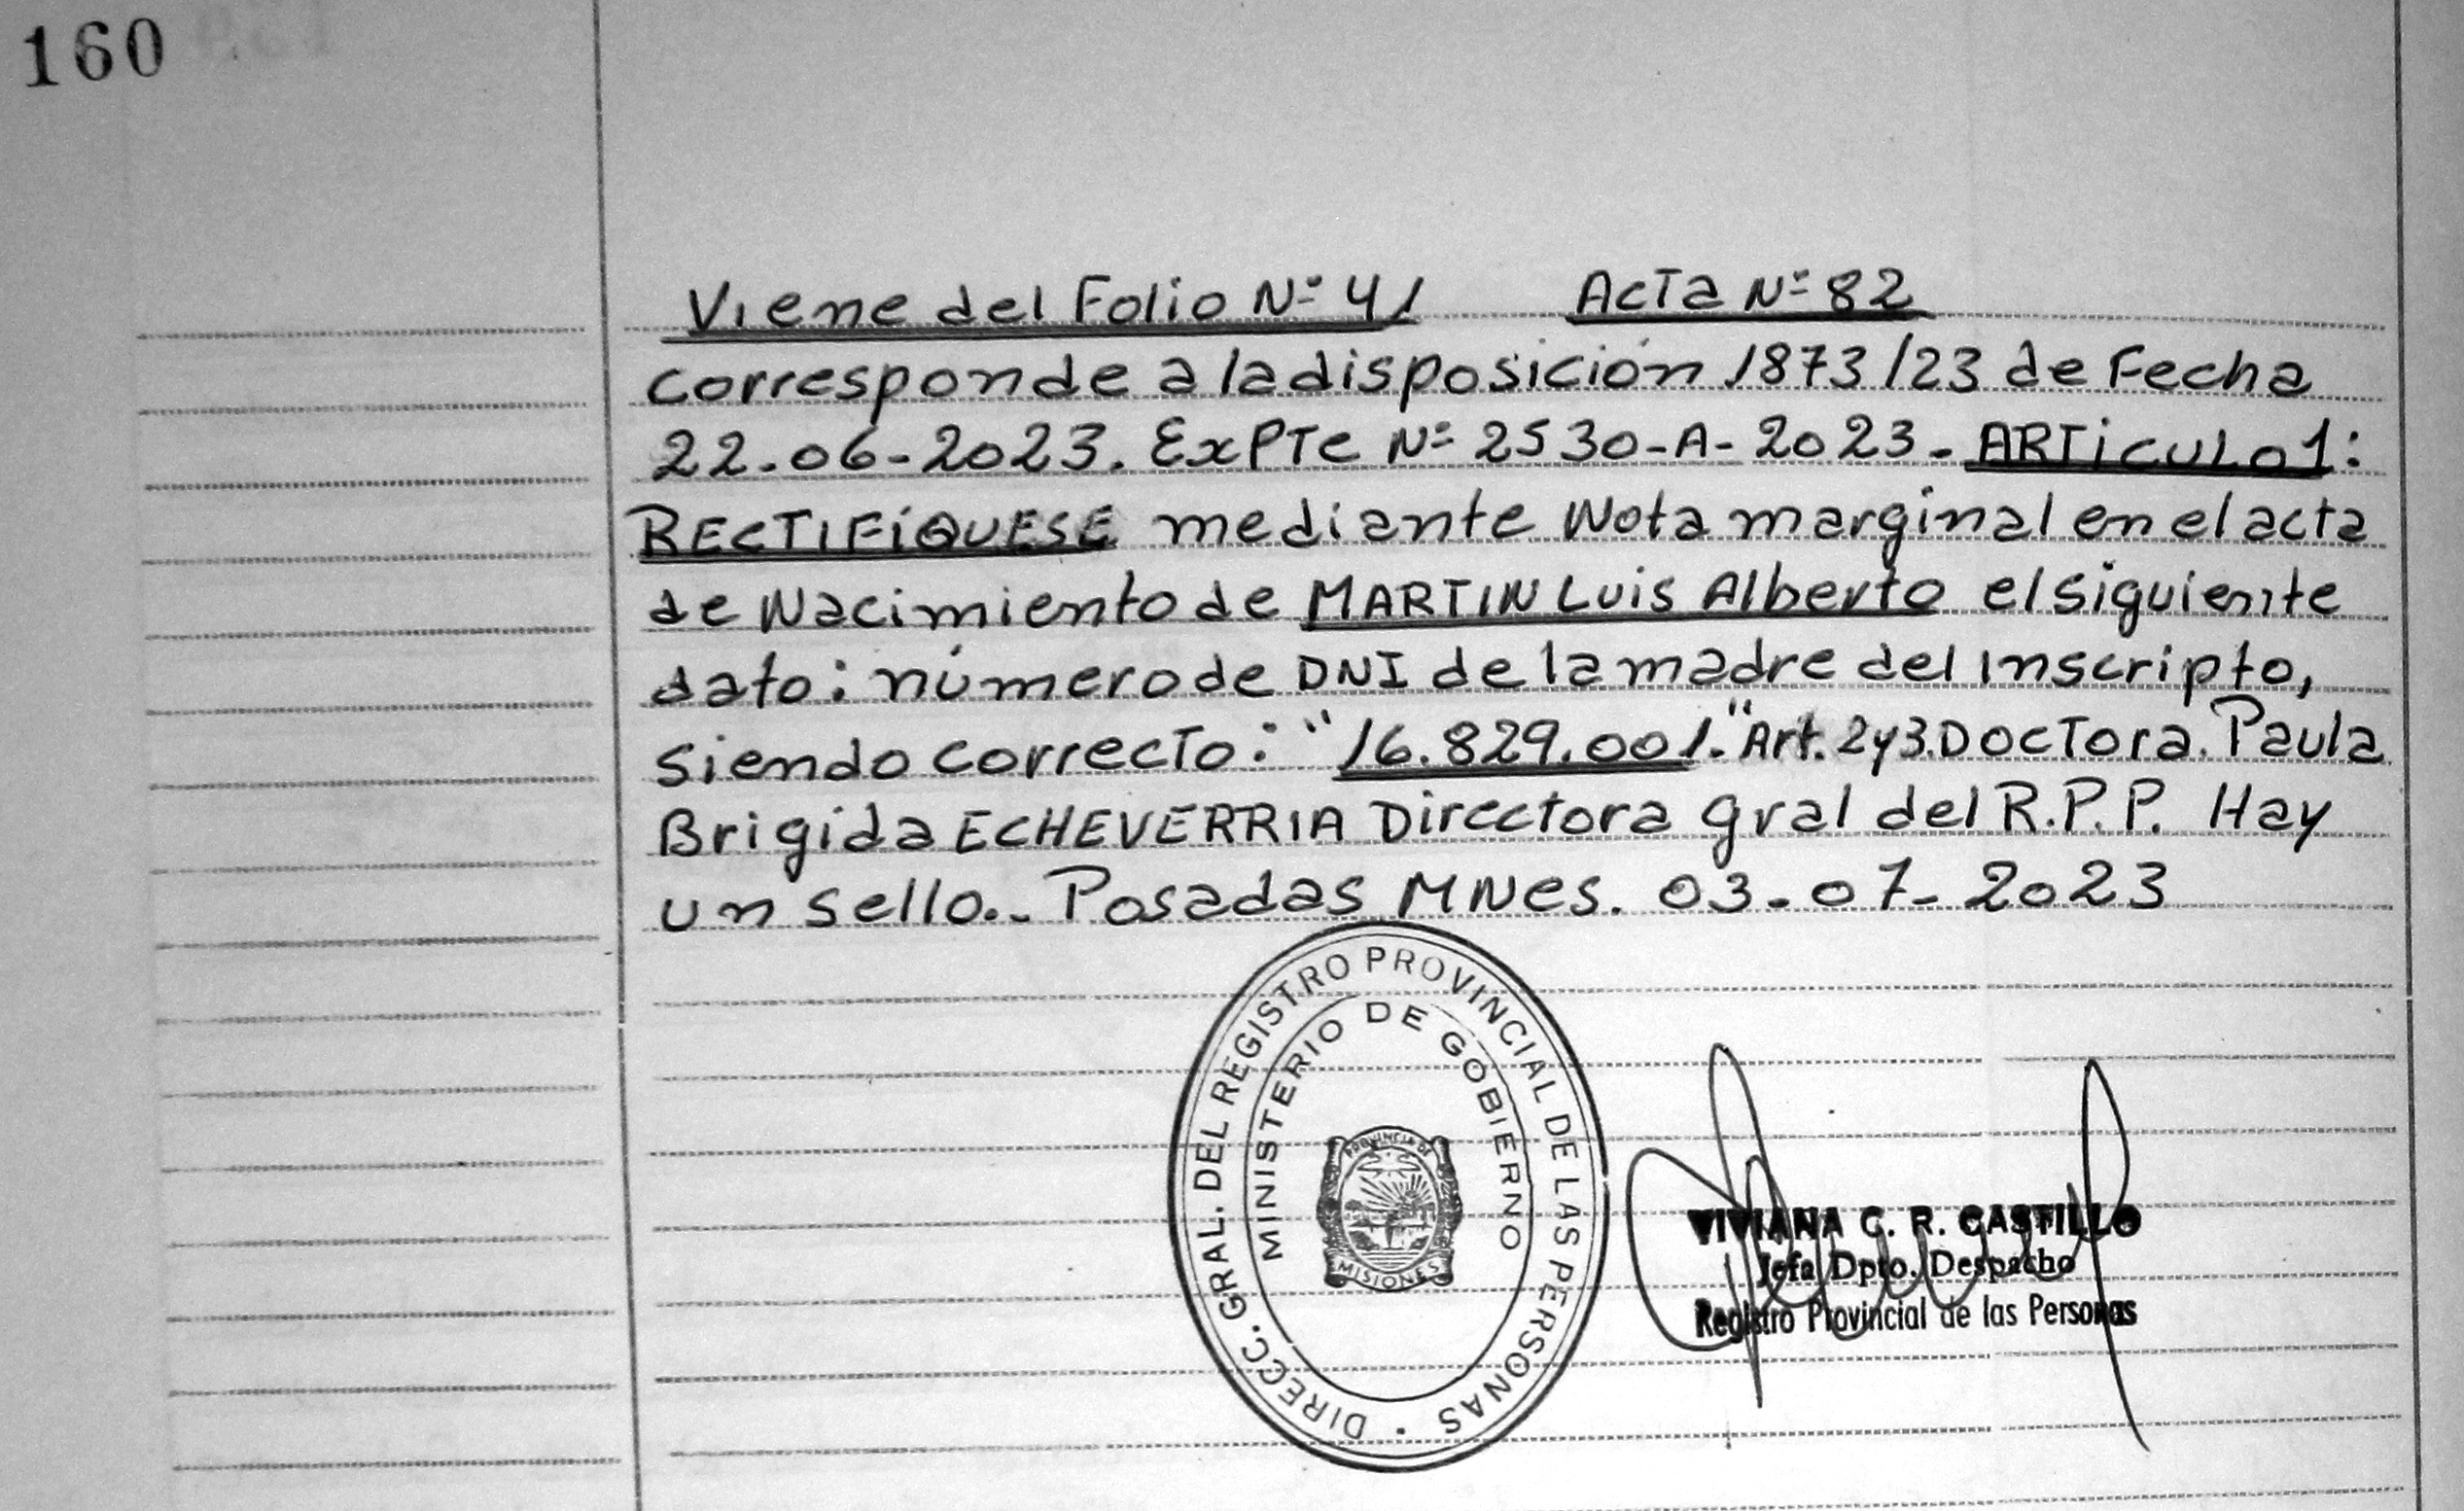 160
Viene del Folio Nº 41 Acta Nº 82
corresponde a la disposición 1873/23 de Fecha
22-06-2023. ExPTe Nº 2530-A-2023. ARTiCULO 1:
RECTIFÍQUESE mediante Nota marginal en el acta
de Nacimiento de MARTIN Luis Alberto el siguiente
dato: número de DNI de la madre del inscripto,
siendo correcto: "16.829.001." Art. 2 y 3. Doctora. Paula
Brigida ECHEVERRIA Directora gral del R.P.P. Hay
un sello.. Posadas MNes. 03-07-2023
DIRECC. GRAL. DEL REGISTRO PROVINCIAL DE LAS PERSONAS
MINISTERIO DE GOBIERNO
PROVINCIA DE
MISIONES
VIVIANA C. R. CASTILLO
Jefa Dpto. Despacho
Registro Provincial de las Personas